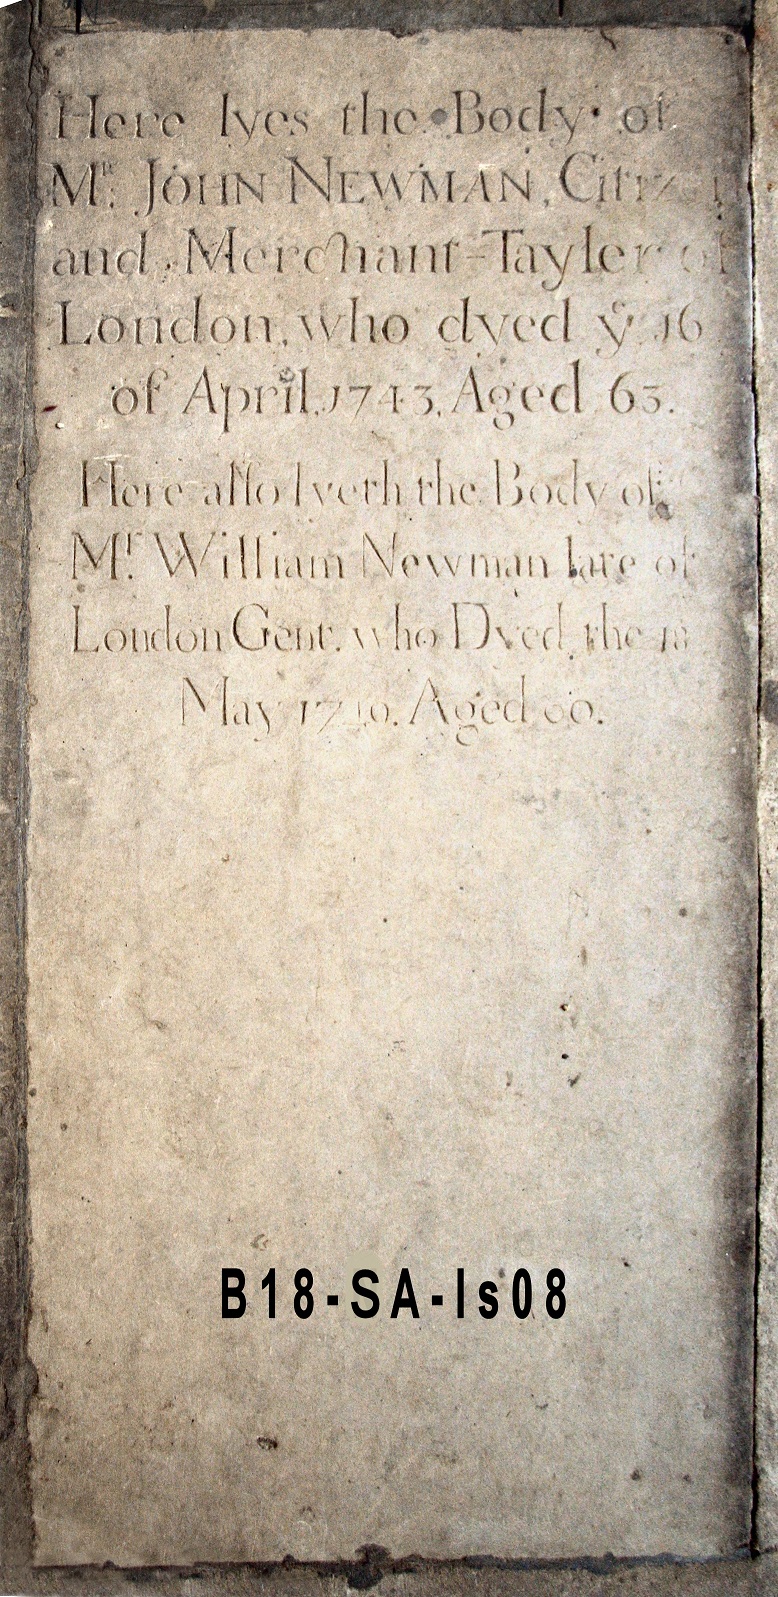 Here lyes the Body of
Mr. JOHN NEWMAN, Citizen
and Merchant-Tayler of
London, who dyed ye 16
of April, 1743. Aged 63.
Here also lyeth the Body of
Mr. William Newman late of
London Gent. who Dyed the 18
May Aged
B18-SA-ls08